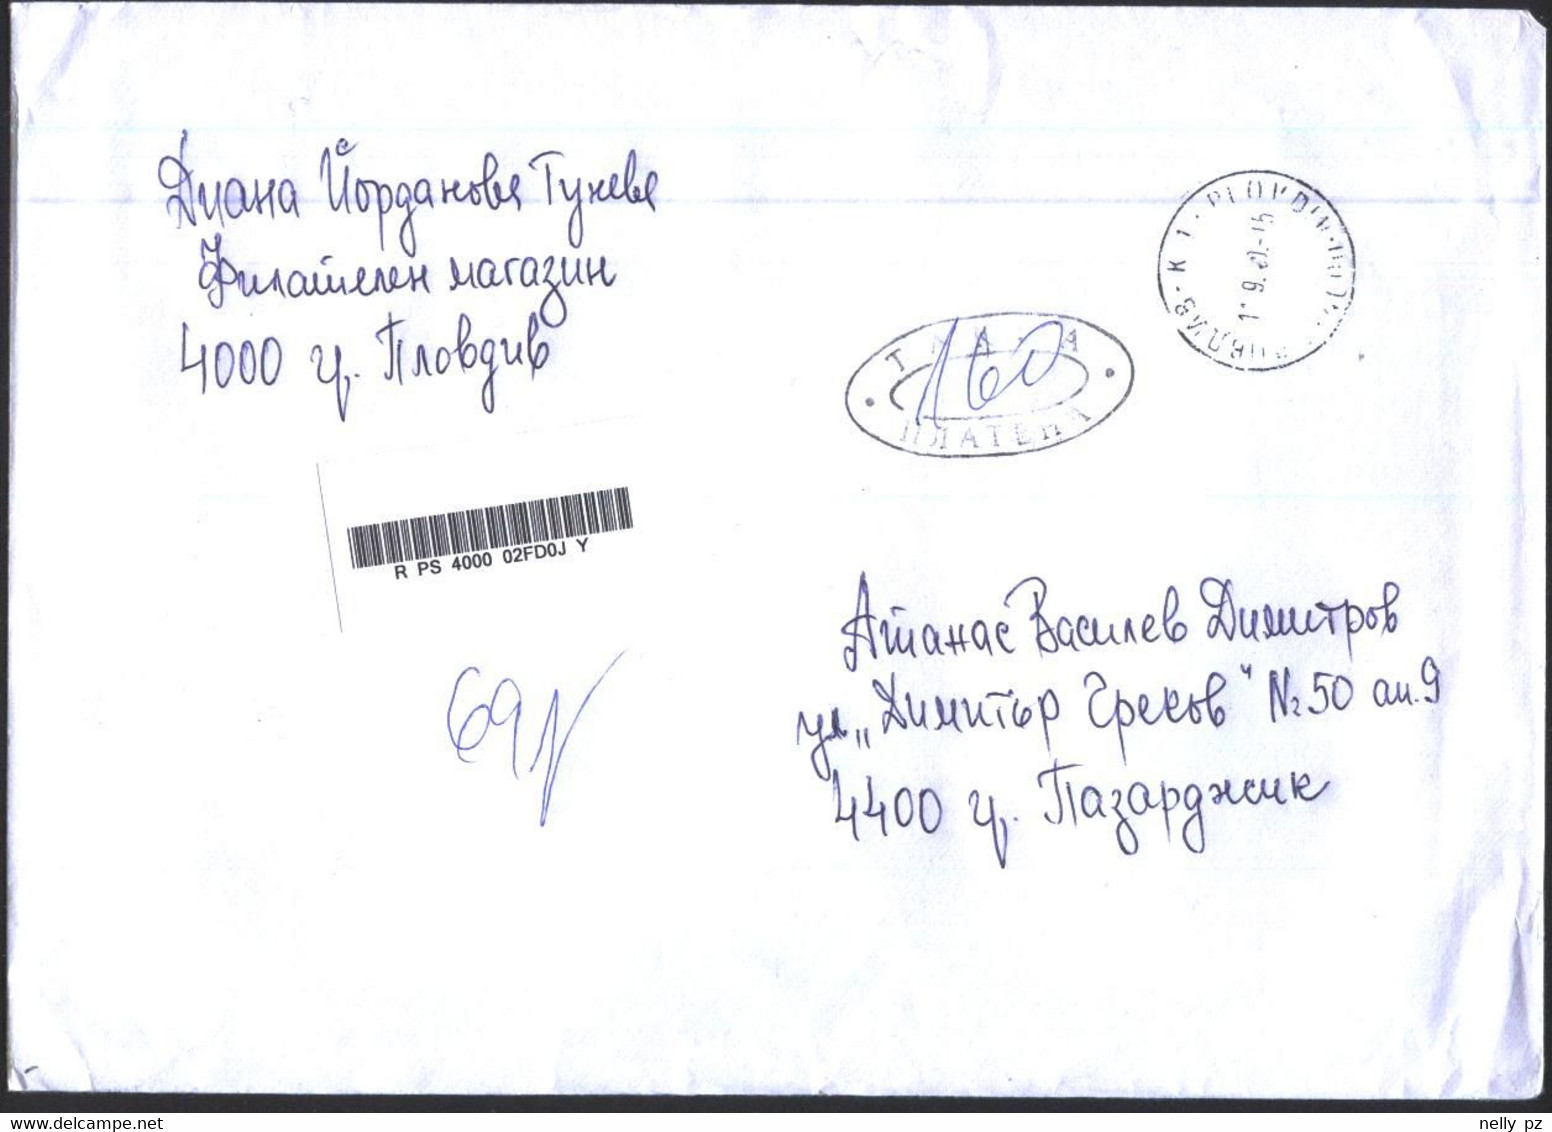 Диана Йорданова Тунева
Филателен магазин
4000 гр. Пловдив
ТАКСА
160
ПЛАТЕНА
R PS 4000 02FD0J Y
69
Атанас Василев Димитров
ул. „Димитър Греков" №50 ап.9
4400 гр. Пазарджик
delcampe.net
nelly_pz